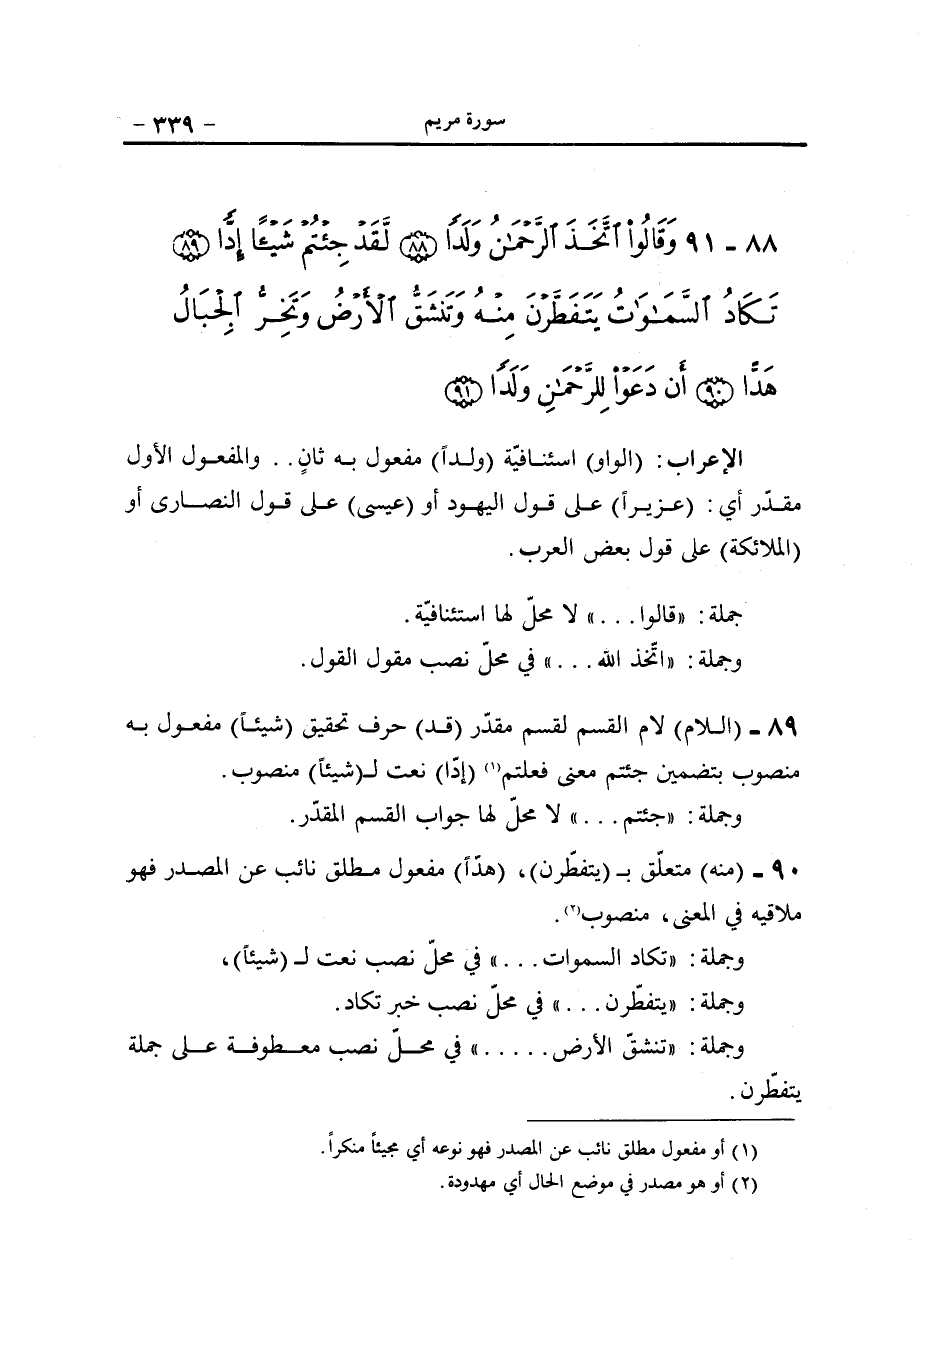 سورة مريم - ٣٣٩ -
٨٨ - ٩١ وَقَالُواْ ٱتَّخَذَ ٱلرَّحْمَٰنُ وَلَدًا ﴿٨٨﴾ لَّقَدْ جِئْتُمْ شَيْـًٔا إِدًّا ﴿٨٩﴾
تَكَادُ ٱلسَّمَٰوَٰتُ يَتَفَطَّرْنَ مِنْهُ وَتَنشَقُّ ٱلْأَرْضُ وَتَخِرُّ ٱلْجِبَالُ
هَدًّا ﴿٩٠﴾ أَن دَعَوْاْ لِلرَّحْمَٰنِ وَلَدًا ﴿٩١﴾
الإعراب: (الواو) اسئنافيّة (ولداً) مفعول به ثانٍ.. والمفعول الأول
مقدّر أي: (عزيراً) على قول اليهود أو (عيسى) على قول النصارى أو
(الملائكة) على قول بعض العرب.
جملة: «قالوا...» لا محلّ لها استئنافيّة.
وجملة: «اتّخذ الله...» في محلّ نصب مقول القول.
٨٩ - (اللام) لام القسم لقسم مقدّر (قد) حرف تحقيق (شيئاً) مفعول به
منصوب بتضمين جئتم معنى فعلتم(١) (إدّا) نعت لـ(شيئاً) منصوب.
وجملة: «جئتم...» لا محلّ لها جواب القسم المقدّر.
٩٠ - (منه) متعلّق بـ (يتفطّرن)، (هدّاً) مفعول مطلق نائب عن المصدر فهو
ملاقيه في المعنى، منصوب(٢).
وجملة: «تكاد السموات...» في محلّ نصب نعت لـ (شيئاً)،
وجملة: «يتفطّرن...» في محلّ نصب خبر تكاد.
وجملة: «تنشقّ الأرض.....» في محلّ نصب معطوفة على جملة
يتفطّرن.
(١) أو مفعول مطلق نائب عن المصدر فهو نوعه أي مجيئاً منكراً.
(٢) أو هو مصدر في موضع الحال أي مهدودة.